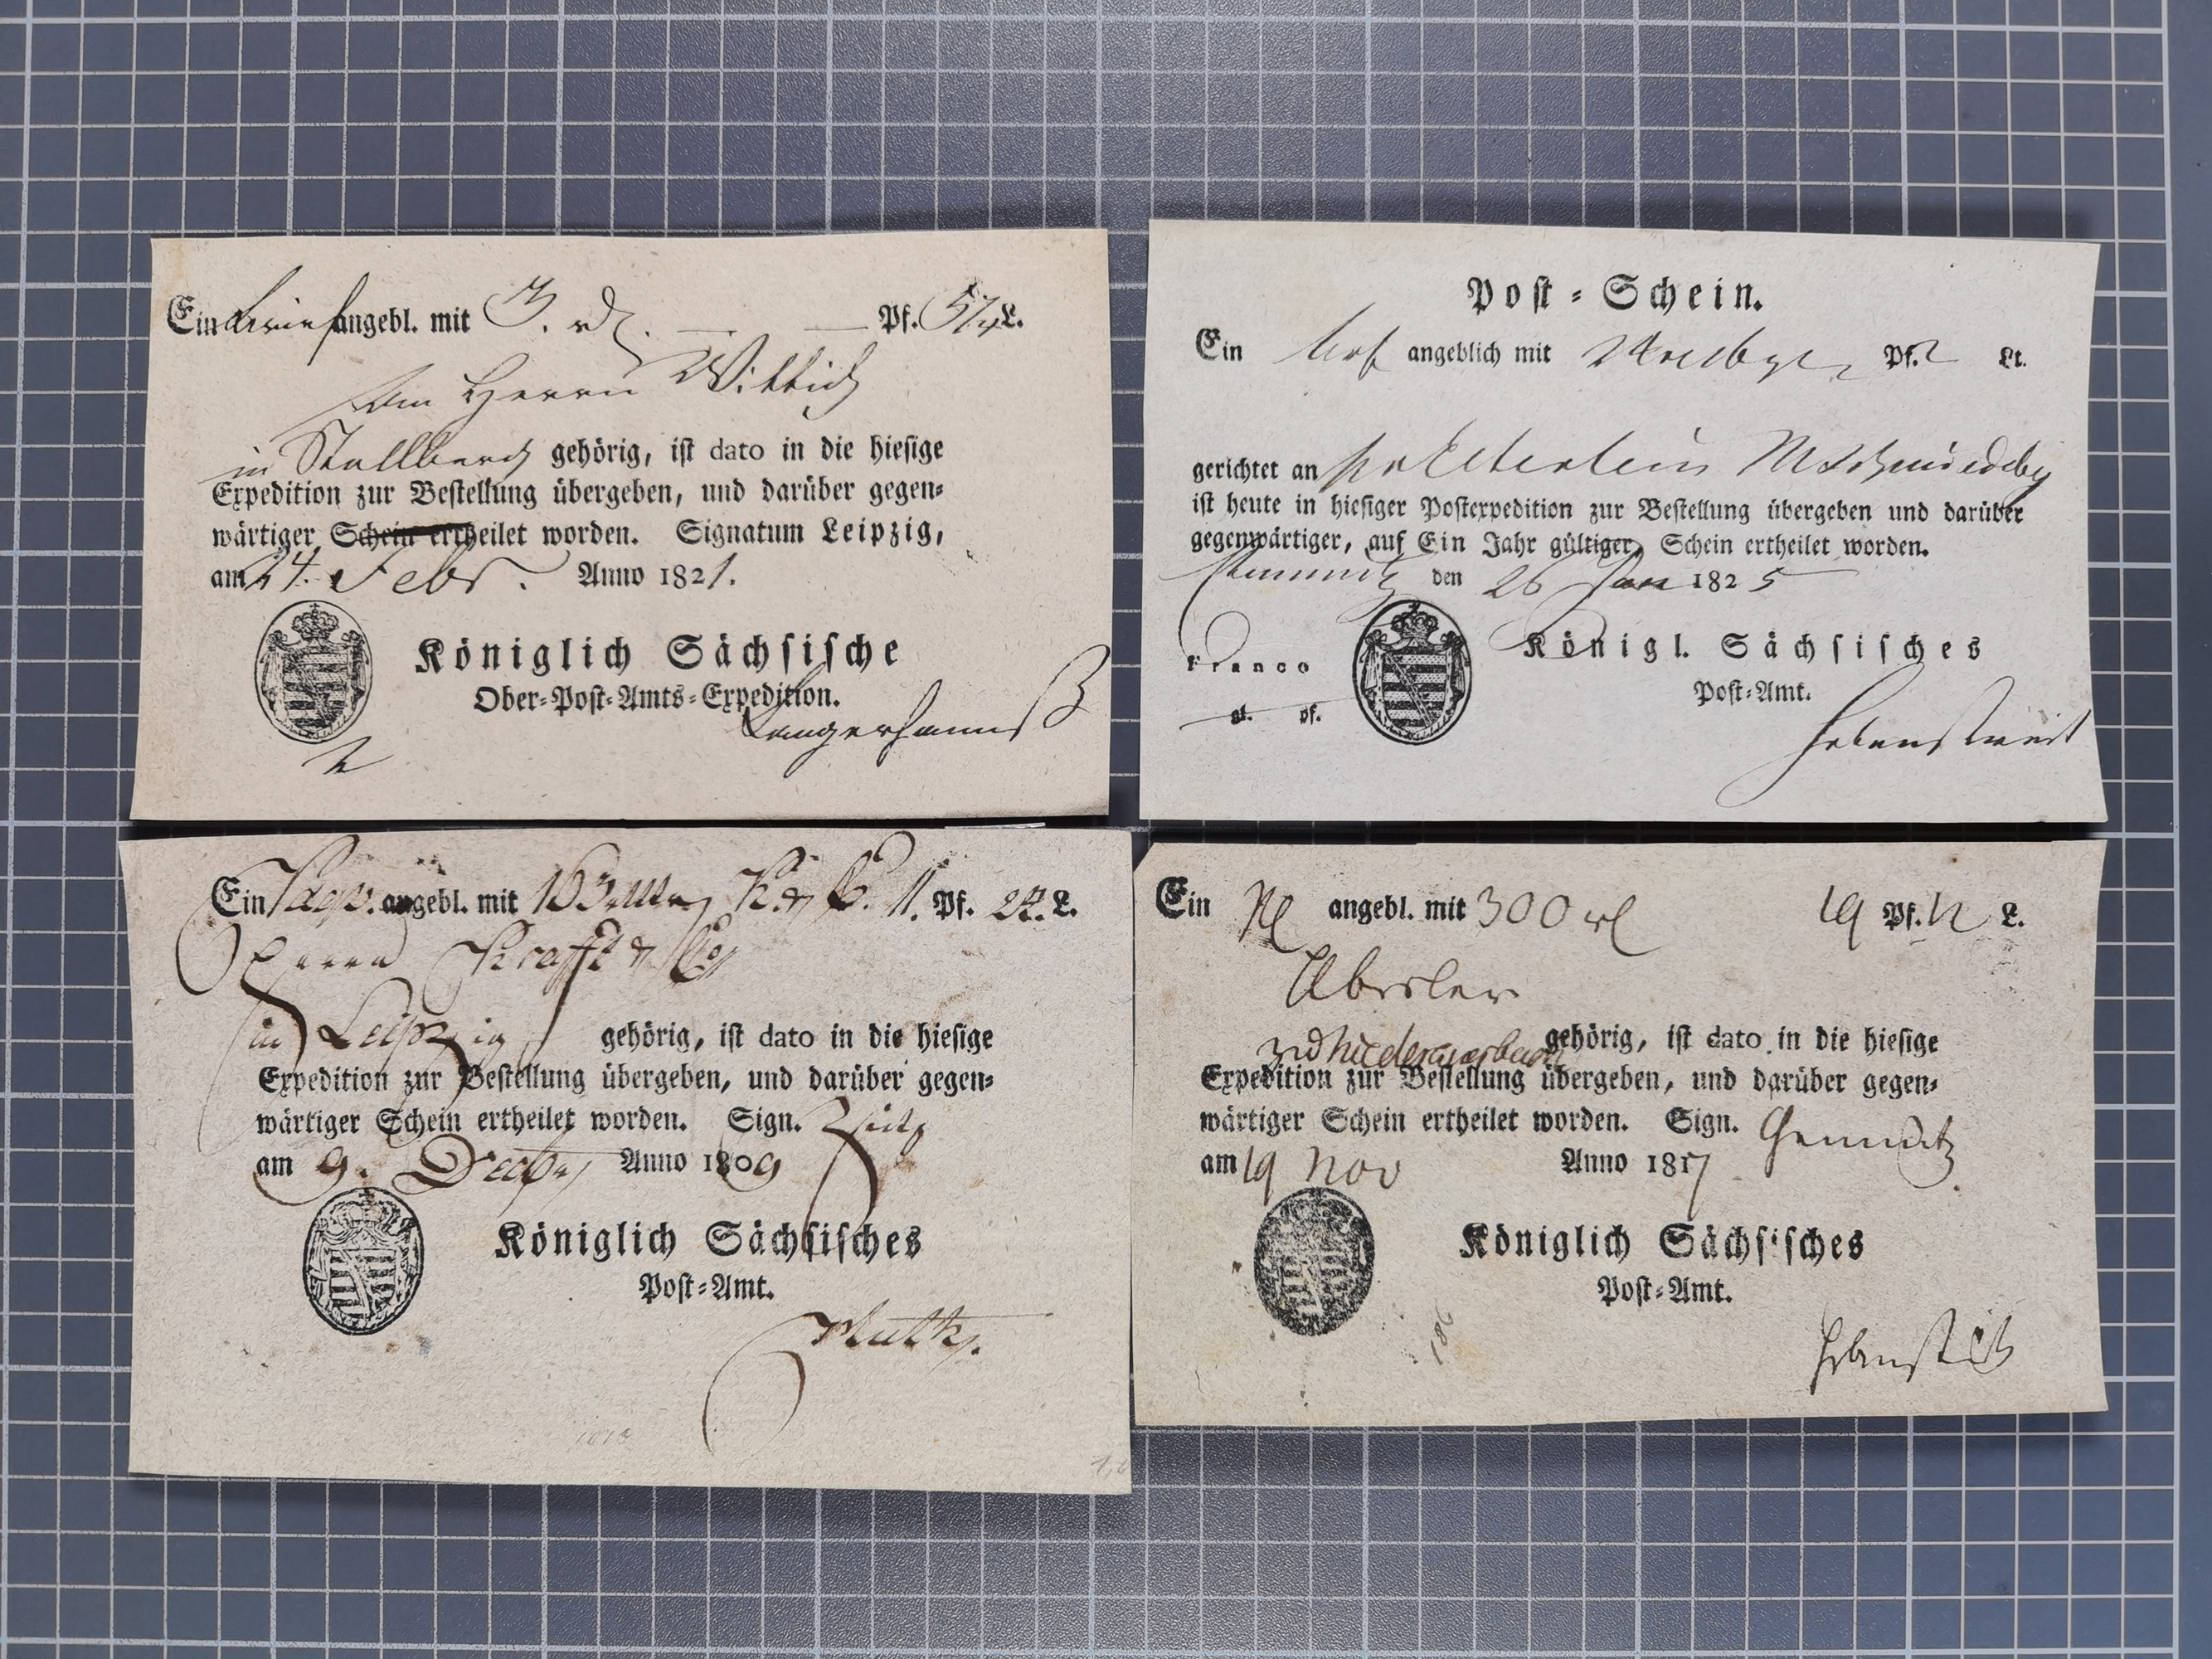 Ein Brief angebl. mit 3. rℓ. — — Pf. 5¼ L.
An Herrn Wittich
in Stollberg gehörig, ist dato in die hiesige
Expedition zur Bestellung übergeben, und darüber gegen-
wärtiger Schein ertheilet worden. Signatum Leipzig,
am 24. Febr. Anno 1821.
Königlich Sächsische
Ober-Post-Amts-Expedition.
Langerhannß
Post-Schein.
Ein angeblich mit Pf. Lt.
gerichtet an
ist heute in hiesiger Postexpedition zur Bestellung übergeben und darüber
gegenwärtiger, auf Ein Jahr gültiger, Schein ertheilet worden.
Chemnitz den 26 Jan 1825
Franco
gl. pf.
Königl. Sächsisches
Post-Amt.
Hebenstreit
Ein angebl. mit 11. Pf. L.
Herrn Krafft & Co
in Leipzig gehörig, ist dato in die hiesige
Expedition zur Bestellung übergeben, und darüber gegen-
wärtiger Schein ertheilet worden. Sign. Zeitz
am 9. Decbr Anno 1809
Königlich Sächsisches
Post-Amt.
Ein angebl. mit 300 rℓ 19 Pf. 12 L.
gehörig, ist dato in die hiesige
Expedition zur Bestellung übergeben, und darüber gegen-
wärtiger Schein ertheilet worden. Sign. Chemnitz
am 19 Nov Anno 1817
Königlich Sächsisches
Post-Amt.
Hebenstreit